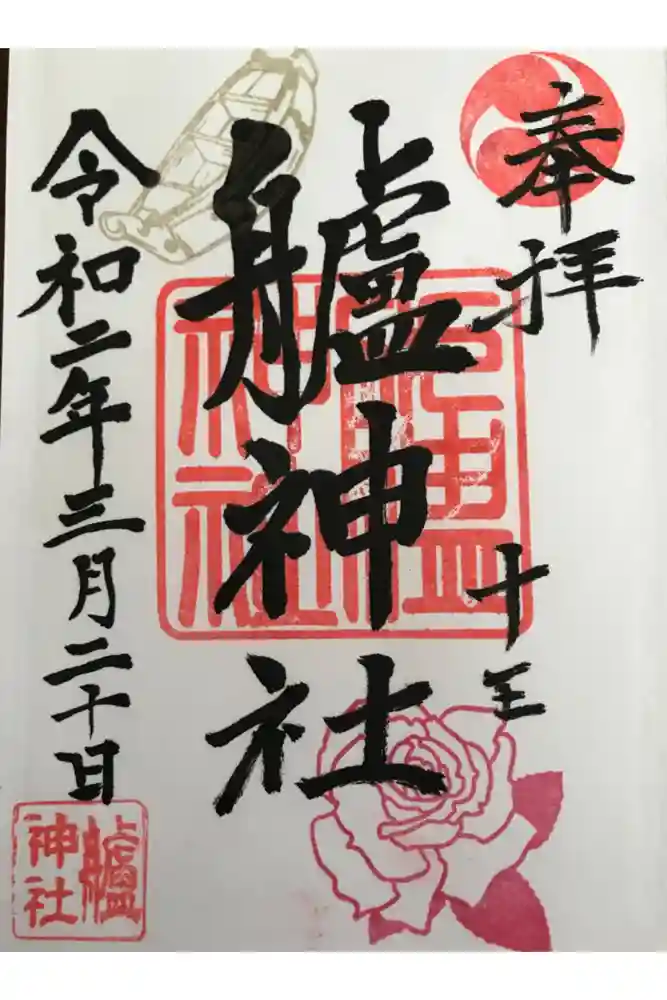 奉拝
十王
艫神社
令和二年三月二十日
艫神社
艫神社